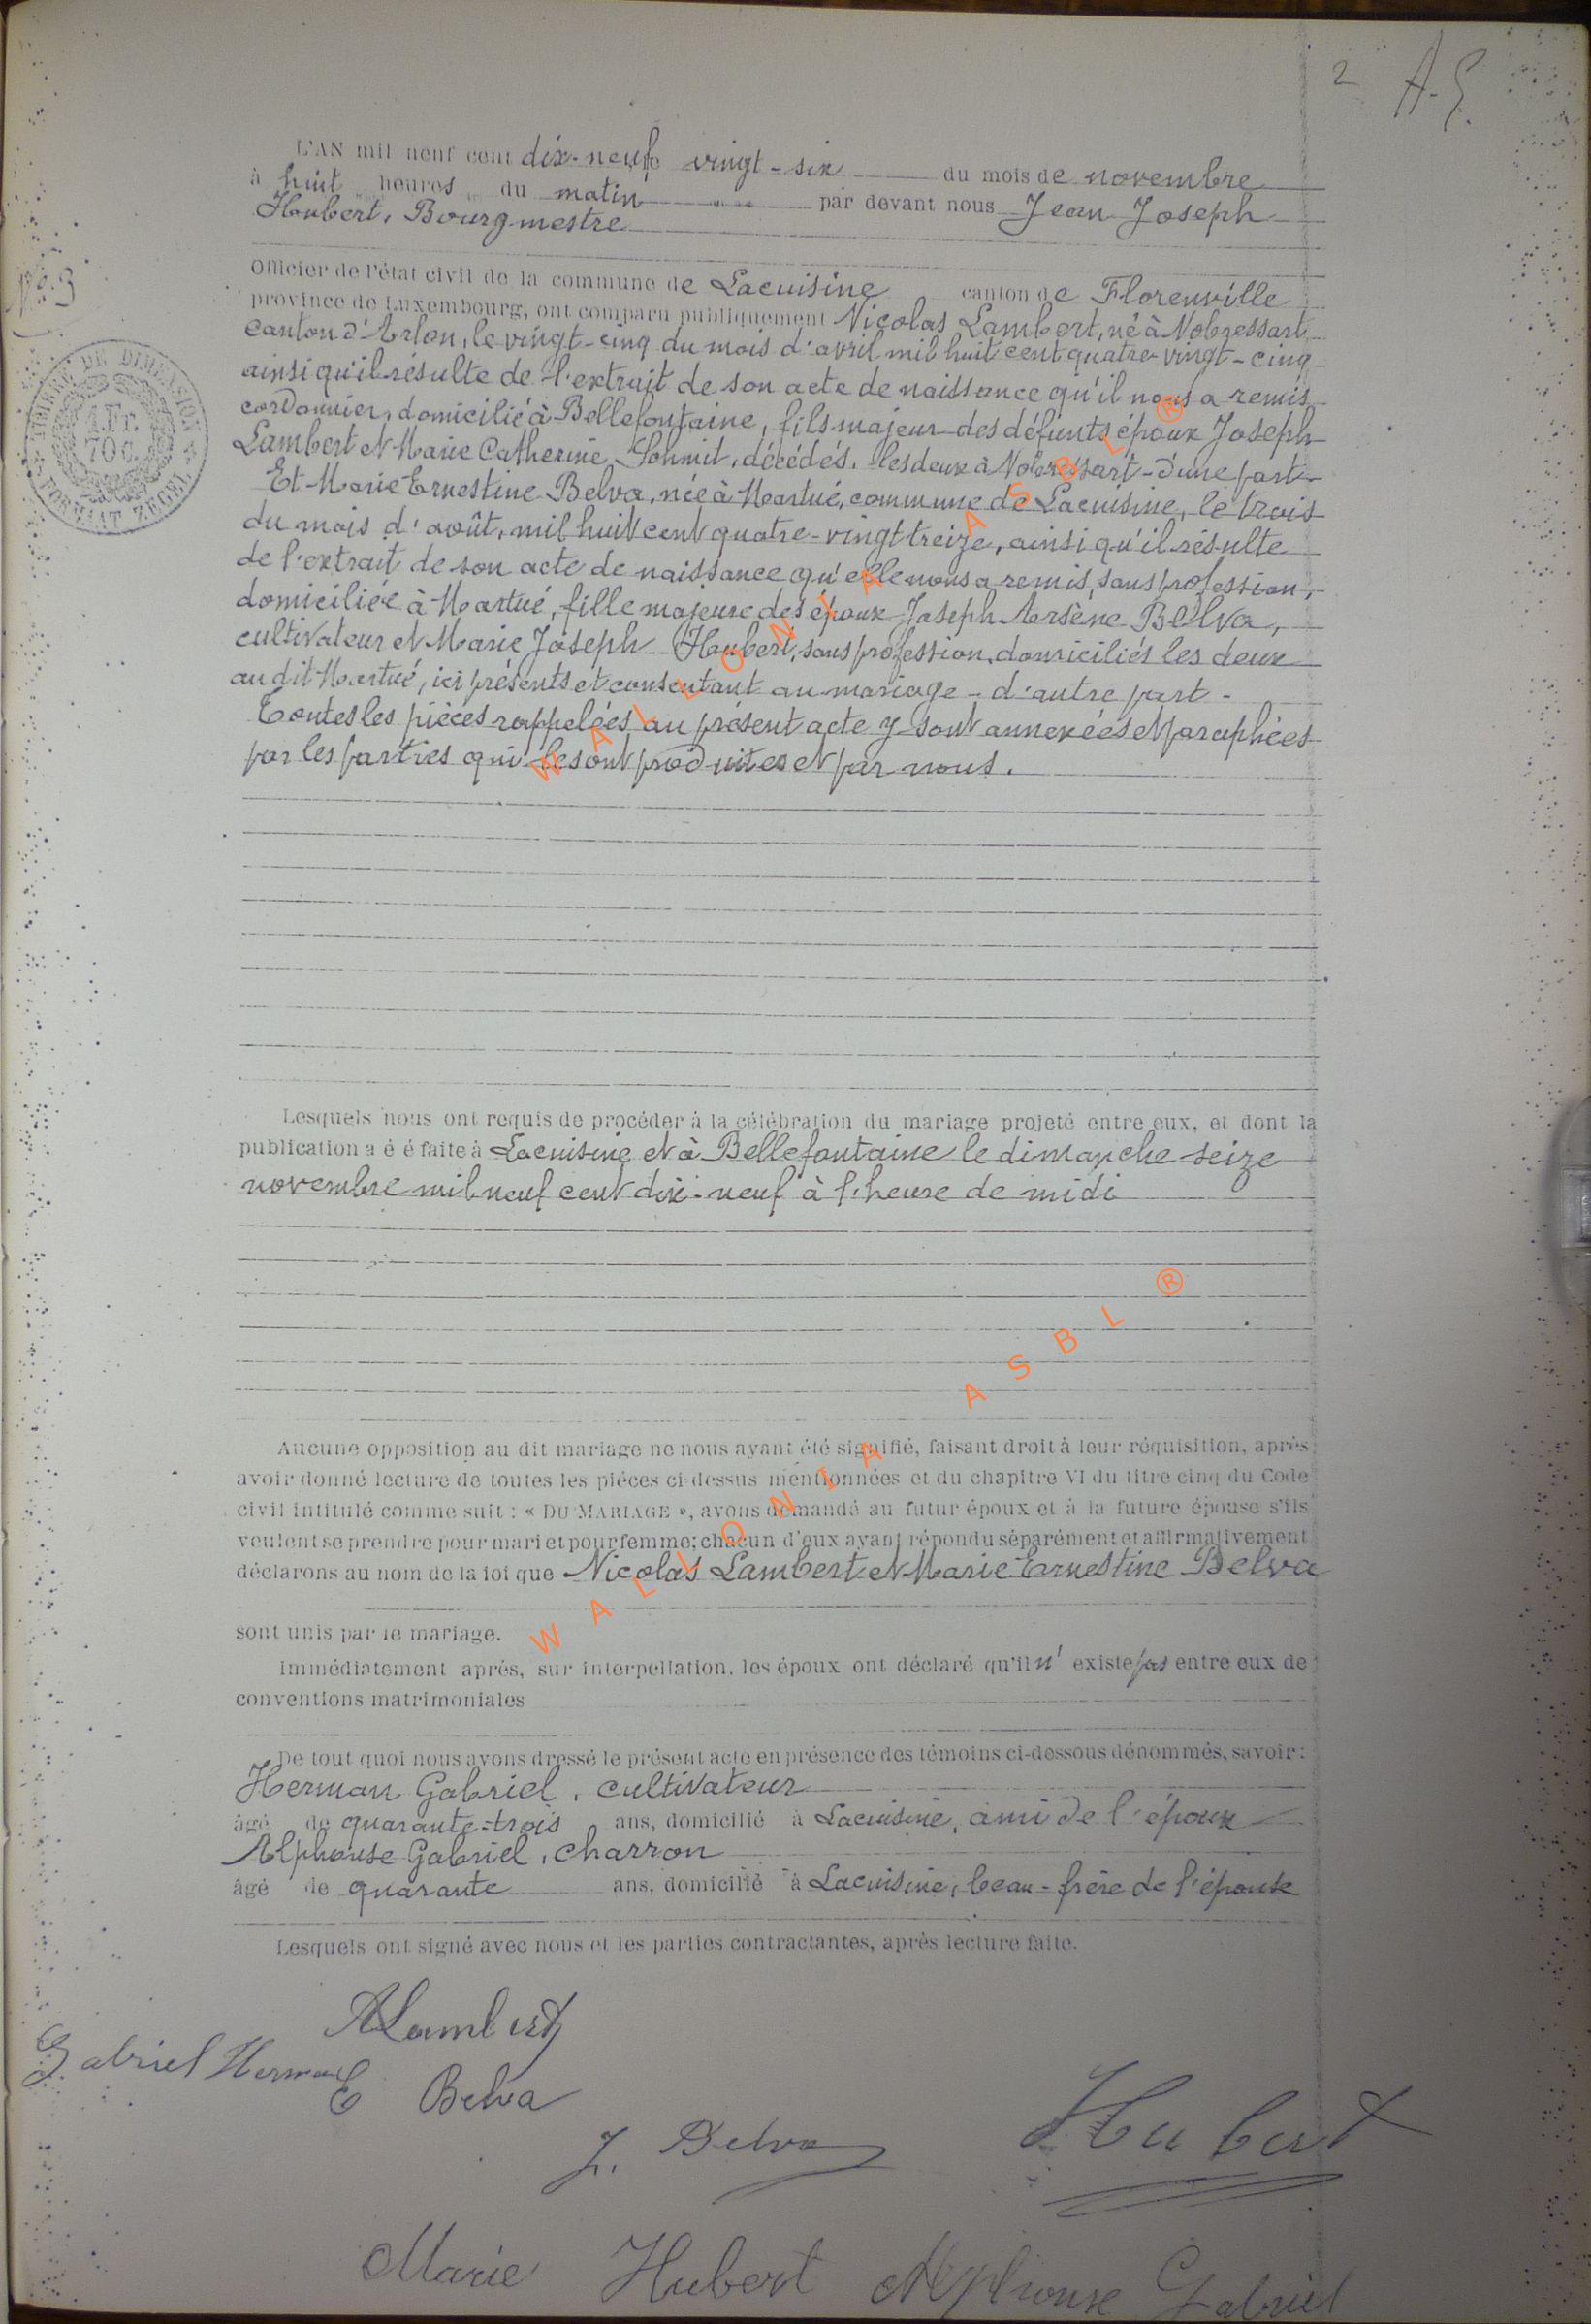 2 A. G.
L'AN mil neuf cent dix-neuf le vingt-six du mois de novembre
à huit heures du matin par devant nous Jean Joseph
Hubert, Bourgmestre
No. 3
Officier de l'état civil de la commune de Lacuisine canton de Florenville
province de Luxembourg, ont comparu publiquement Nicolas Lambert, né à Nobressart
canton d'Arlon, le vingt-cinq du mois d'avril mil huit cent quatre-vingt-cinq
ainsi qu'il résulte de l'extrait de son acte de naissance qu'il nous a remis
cordonnier, domicilié à Bellefontaine, fils majeur des défunts époux Joseph
Lambert et Marie Catherine Schmit, décédés, les deux à Nobressart - d'une part.
Et Marie Ernestine Belva, née à Martué, commune de Lacuisine, le trois
du mois d'août, mil huit cent quatre-vingt treize, ainsi qu'il résulte
de l'extrait de son acte de naissance qu'elle nous a remis, sans profession,
domiciliée à Martué, fille majeure des époux Joseph Arsène Belva,
cultivateur et Marie Joseph Hubert, sans profession, domiciliés les deux
au dit Martué, ici présents et consentant au mariage - d'autre part -
Toutes les pièces rappelées au présent acte y sont annexées et paraphées
par les parties qui les ont produites et par nous.
TIMBRE DE DIMENSION
1 Fr.
70 c.
FORMAAT ZEGEL
Lesquels nous ont requis de procéder à la célébration du mariage projeté entre eux, et dont la
publication a é é faite à Lacuisine et à Bellefontaine le dimanche seize
novembre mil neuf cent dix-neuf à l'heure de midi
Aucune opposition au dit mariage ne nous ayant été signifié, faisant droit à leur réquisition, après
avoir donné lecture de toutes les pièces ci-dessus mentionnées et du chapitre VI du titre cinq du Code
civil intitulé comme suit : « DU MARIAGE », avons demandé au futur époux et à la future épouse s'ils
veulent se prendre pour mari et pour femme; chacun d'eux ayant répondu séparément et affirmativement
déclarons au nom de la loi que Nicolas Lambert et Marie Ernestine Belva
sont unis par le mariage.
Immédiatement après, sur interpellation, les époux ont déclaré qu'il n' existe pas entre eux de
conventions matrimoniales
De tout quoi nous avons dressé le présent acte en présence des témoins ci-dessous dénommés, savoir :
Herman Gabriel, cultivateur
âgé de quarante-trois ans, domicilié à Lacuisine, ami de l'époux
Alphonse Gabriel, charron
âgé de quarante ans, domicilié à Lacuisine, beau-frère de l'épouse
Lesquels ont signé avec nous et les parties contractantes, après lecture faite.
NLambert
Gabriel Herman
E Belva
J. Belva
Hubert
Marie Hubert Alphonse Gabriel
WALLONIA ASBL ®
WALLONIA ASBL ®